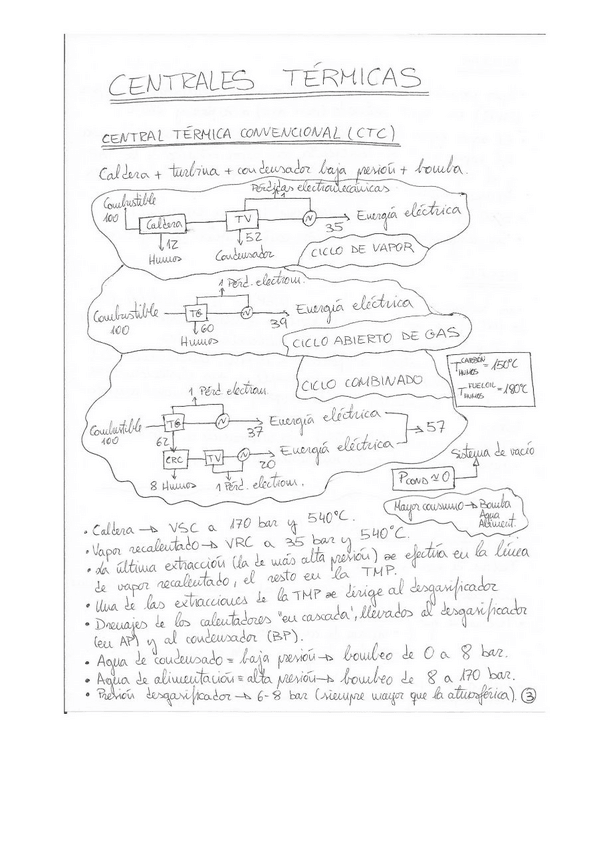 CENTRALES TÉRMICAS
CENTRAL TÉRMICA CONVENCIONAL (CTC)
Caldera + turbina + condensador baja presión + bomba.
Pérdidas electromecánicas
1
Combustible
100
Caldera
TV
N
Energía eléctrica
35
12
Humos
52
Condensador
CICLO DE VAPOR
1 Pérd. electrom.
Combustible
100
TG
N
Energía eléctrica
39
60
Humos
CICLO ABIERTO DE GAS
CICLO COMBINADO
T HUMOS CARBÓN = 150ºC
T HUMOS FUELOIL = 180ºC
1 Pérd electrom.
Combustible
100
TG
N
Energía eléctrica
37
57
62
CRC
TV
N
Energía eléctrica
20
8 Humos
1 Pérd. electrom.
Sistema de vacío
PCOND ≃ 0
Mayor consumo → Bomba
Agua
Aliment.
• Caldera → VSC a 170 bar y 540ºC.
• Vapor recalentado → VRC a 35 bar y 540ºC.
• La última extracción (la de más alta presión) se efectúa en la línea
de vapor recalentado, el resto en la TMP.
• Una de las extracciones de la TMP se dirige al desgasificador
• Drenajes de los calentadores "en cascada", llevados al desgasificador
(en AP) y al condensador (BP).
• Agua de condensado = baja presión → bombeo de 0 a 8 bar.
• Agua de alimentación = alta presión → bombeo de 8 a 170 bar.
• Presión desgasificador → 6-8 bar (siempre mayor que la atmosférica). 3